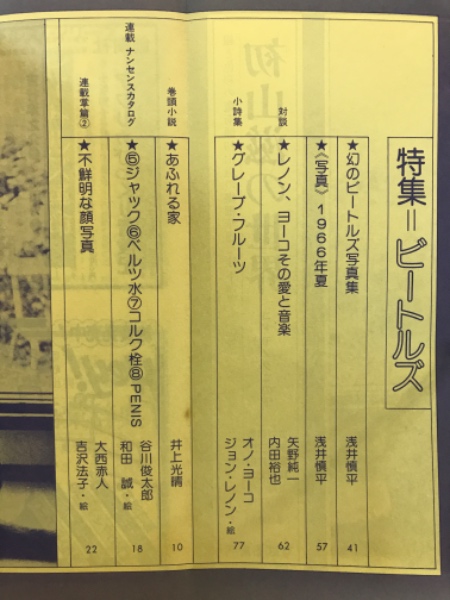 特集=ビートルズ
★幻のビートルズ写真集 浅井慎平 41
★《写真》1966年夏 浅井慎平 57
対談 ★レノン、ヨーコその愛と音楽 矢野純一 内田裕也 62
小詩集 ★グレープ・フルーツ オノ・ヨーコ ジョン・レノン・絵 77
巻頭小説 ★あふれる家 井上光晴 10
連載 ナンセンスカタログ ★⑤ジャック⑥ペルツ水⑦コルク栓⑧PENIS 谷川俊太郎 和田 誠・絵 18
連載掌篇② ★不鮮明な顔写真 大西赤人 吉沢法子・絵 22